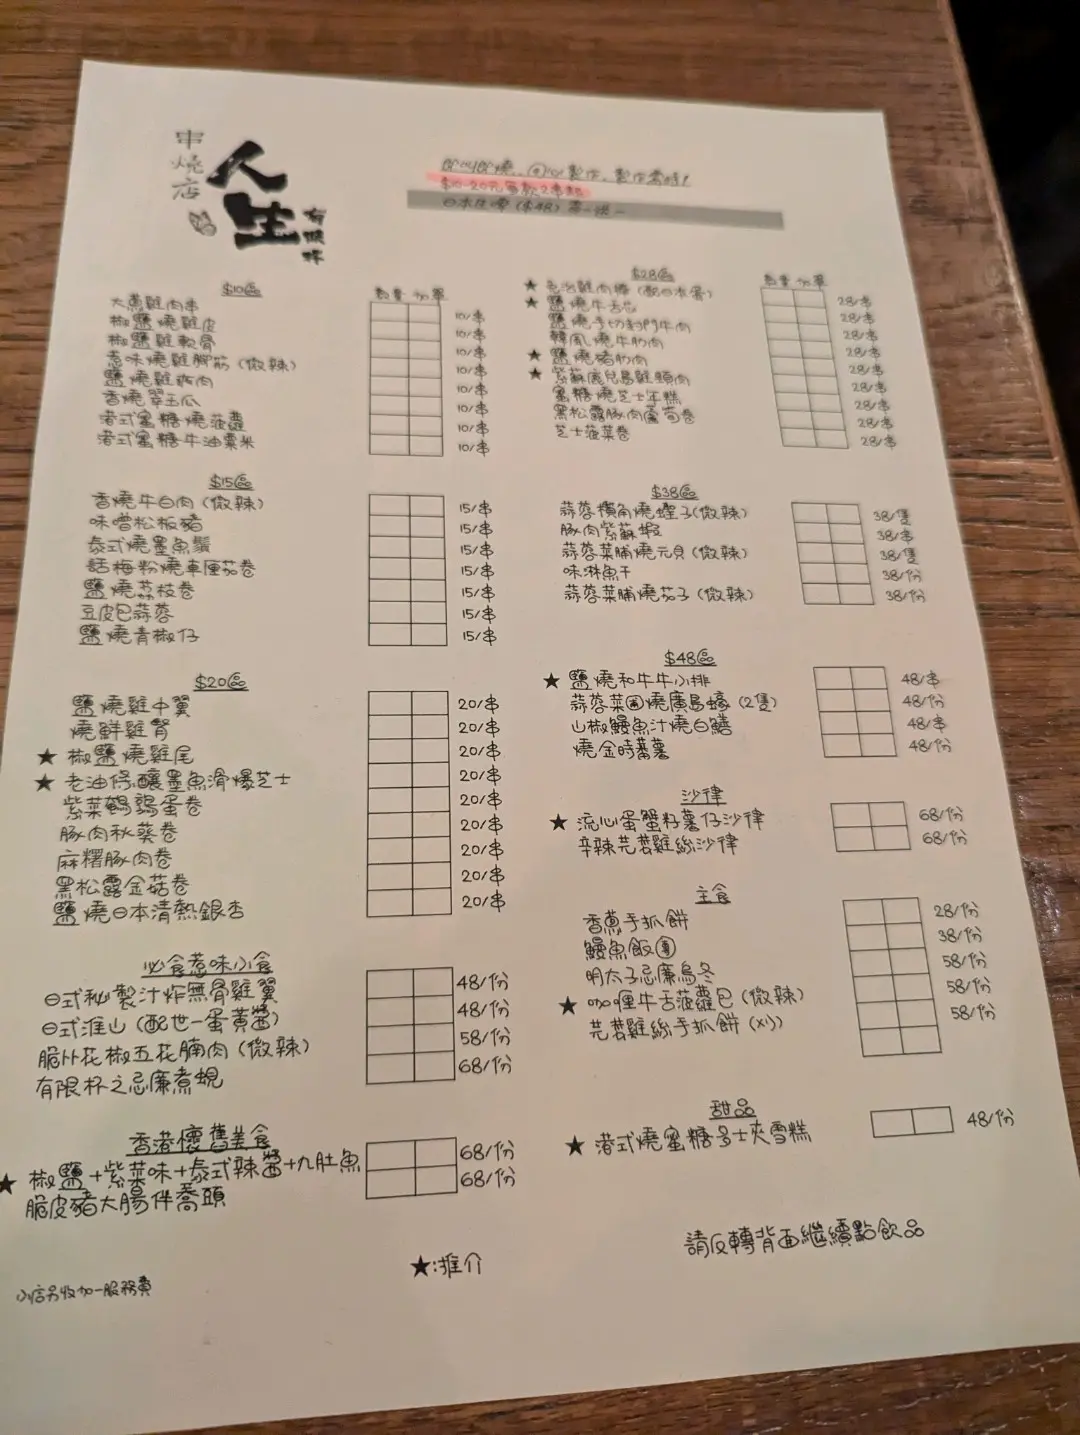 串燒店
人生
有限杯
即叫即燒、@心製作、製作需時!
$10-20元每款2串起
日本生啤 ($48) 買一送一
$10區
數量 加單
大蔥雞肉串 10/串
椒鹽燒雞皮 10/串
椒鹽雞軟骨 10/串
惹味燒雞腳筋 (微辣) 10/串
鹽燒雞爽肉 10/串
香燒翠玉瓜 10/串
港式蜜糖燒菠蘿 10/串
港式蜜糖牛油粟米 10/串
$15區
香燒牛白肉 (微辣) 15/串
味噌松板豬 15/串
泰式燒墨魚鬚 15/串
話梅粉燒車厘茄卷 15/串
鹽燒荔枝卷 15/串
豆皮包蒜蓉 15/串
鹽燒青椒仔 15/串
$20區
鹽燒雞中翼 20/串
燒鮮雞腎 20/串
★ 椒鹽燒雞尾 20/串
★ 老油條釀墨魚滑爆芝士 20/串
紫菜鵪鶉蛋卷 20/串
豚肉秋葵卷 20/串
麻糬豚肉卷 20/串
黑松露金菇卷 20/串
鹽燒日本清熱銀杏 20/串
必食惹味小食
日式秘製汁炸無骨雞翼 48/份
日式淮山 (配世一蛋黃醬) 48/份
脆卜花椒五花腩肉 (微辣) 58/份
有限杯之忌廉煮蜆 68/份
香港懷舊美食
★ 椒鹽+紫菜味+泰式辣醬+九肚魚 68/份
脆皮豬大腸伴蕎頭 68/份
小店另收加一服務費
★:推介
$28區
數量 加單
★ 免治雞肉棒 (配日本蛋) 28/串
★ 鹽燒牛舌芯 28/串
鹽燒手切封門牛肉 28/串
韓風燒牛肋肉 28/串
★ 鹽燒豬肋肉 28/串
★ 紫蘇鹿兒島雞頸肉 28/串
蜜糖燒芝士年糕 28/串
黑松露豚肉蘆筍卷 28/串
芝士菠菜卷 28/串
$38區
蒜蓉欖角燒蟶子(微辣) 38/隻
豚肉紫蘇蝦 38/串
蒜蓉菜脯燒元貝 (微辣) 38/隻
味淋魚干 38/份
蒜蓉菜脯燒茄子 (微辣) 38/份
$48區
★ 鹽燒和牛牛小排 48/串
蒜蓉菜圃燒廣島蠔 (2隻) 48/份
山椒鰻魚汁燒白鱔 48/串
燒金時蕃薯 48/份
沙律
★ 流心蛋蟹籽薯仔沙律 68/份
辛辣芫荽雞絲沙律 68/份
主食
香蔥手抓餅 28/份
鰻魚飯團 38/份
明太子忌廉烏冬 58/份
★ 咖喱牛舌菠蘿包 (微辣) 58/份
芫荽雞絲手抓餅 (凍) 58/份
甜品
★ 港式燒蜜糖多士夾雪糕 48/份
請反轉背面繼續點飲品